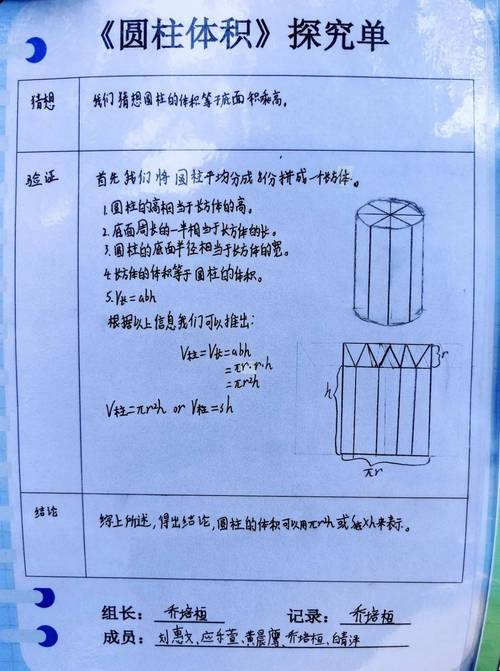 《圆柱体积》探究单
猜想
我们猜想圆柱的体积等于底面积乘高。
验证
首先我们将圆柱平均分成8份拼成一个长方体。
1.圆柱的高相当于长方体的高。
2.底面周长的一半相当于长方体的长。
3.圆柱的底面半径相当于长方体的宽。
4.长方体的体积等于圆柱的体积。
5.V长=abh
根据以上信息我们可以推出:
V柱=V长=abh
=πr·r·h
=πr²h
V柱=πr²h or V柱=sh
r
h
πr
结论
综上所述,得出结论,圆柱的体积可以用πr²h或S底×h来表示。
组长: 乔培桓 记录: 乔培桓
成员: 刘惠文、黄晨鹰、乔培桓、